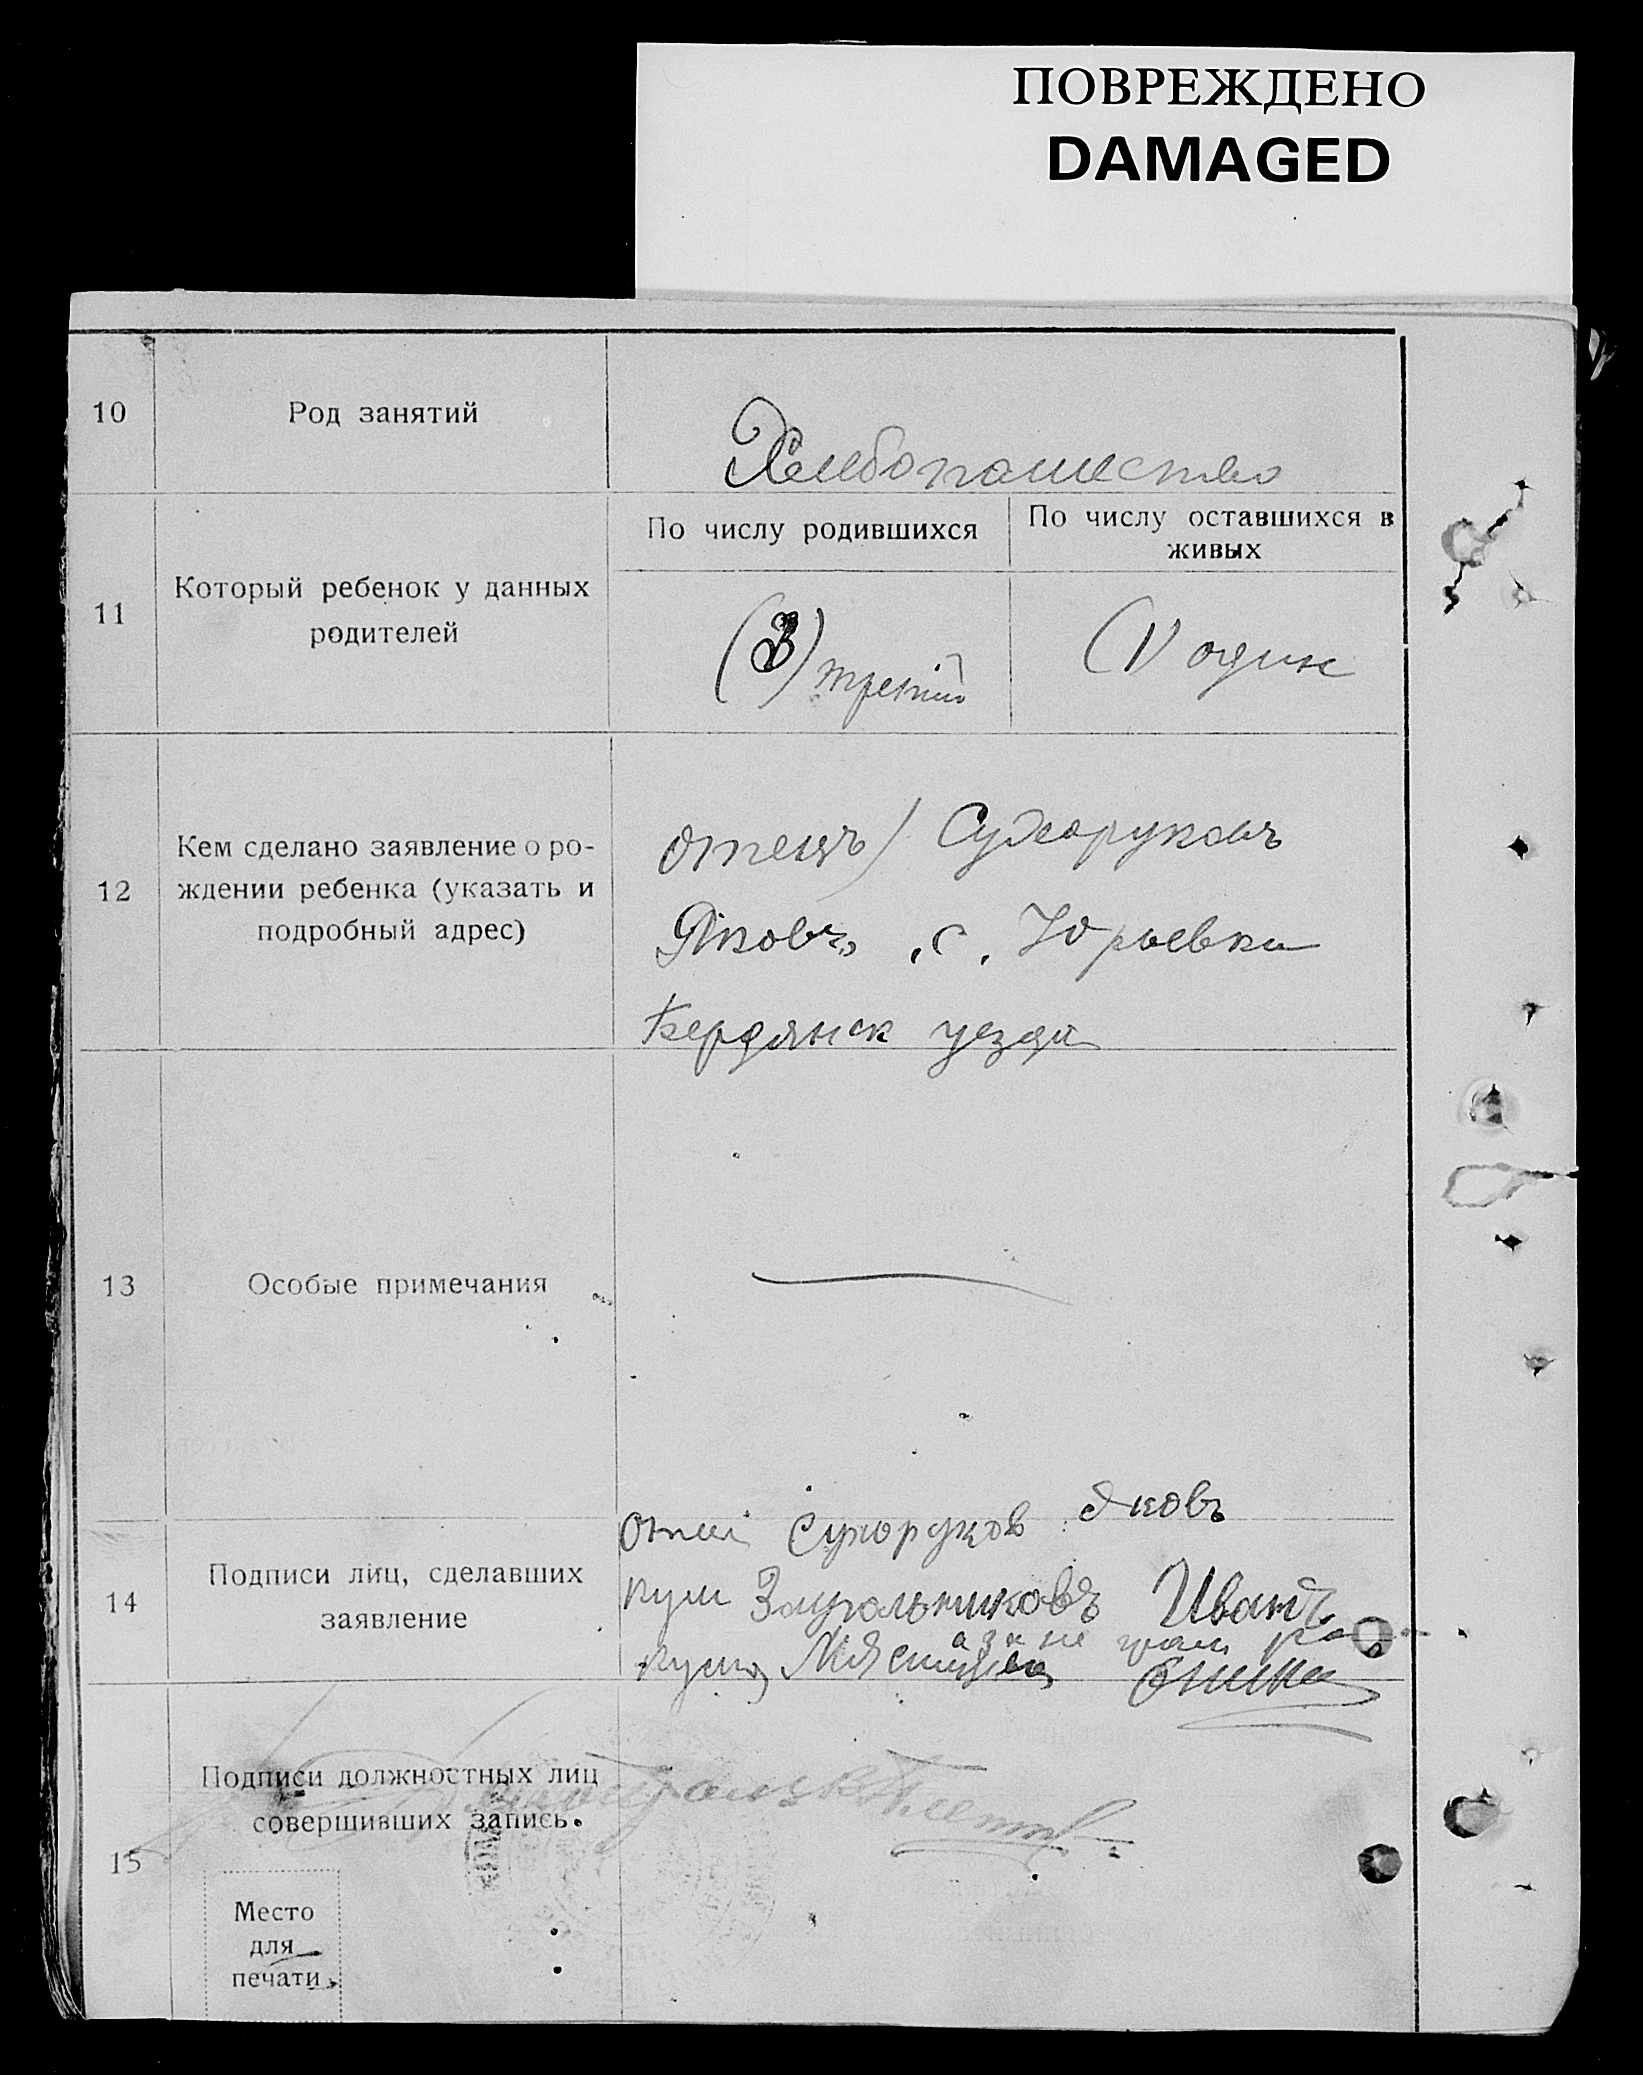 ПОВРЕЖДЕНО
DAMAGED
10
Род занятий
Хлебопашество
11
Который ребенок у данных
родителей
По числу родившихся
По числу оставшихся в
живых
(3) третий
(1) один
12
Кем сделано заявление о ро-
ждении ребенка (указать и
подробный адрес)
отецъ) Сухоруковъ
Яковъ, с. Юрьевки
Бердянск уезда
13
Особые примечания
14
Подписи лиц, сделавших
заявление
Сухоруков Яковъ
кум Иванъ
за не
кума
15
Подписи должностных лиц
совершивших запись.
Место
для
печати